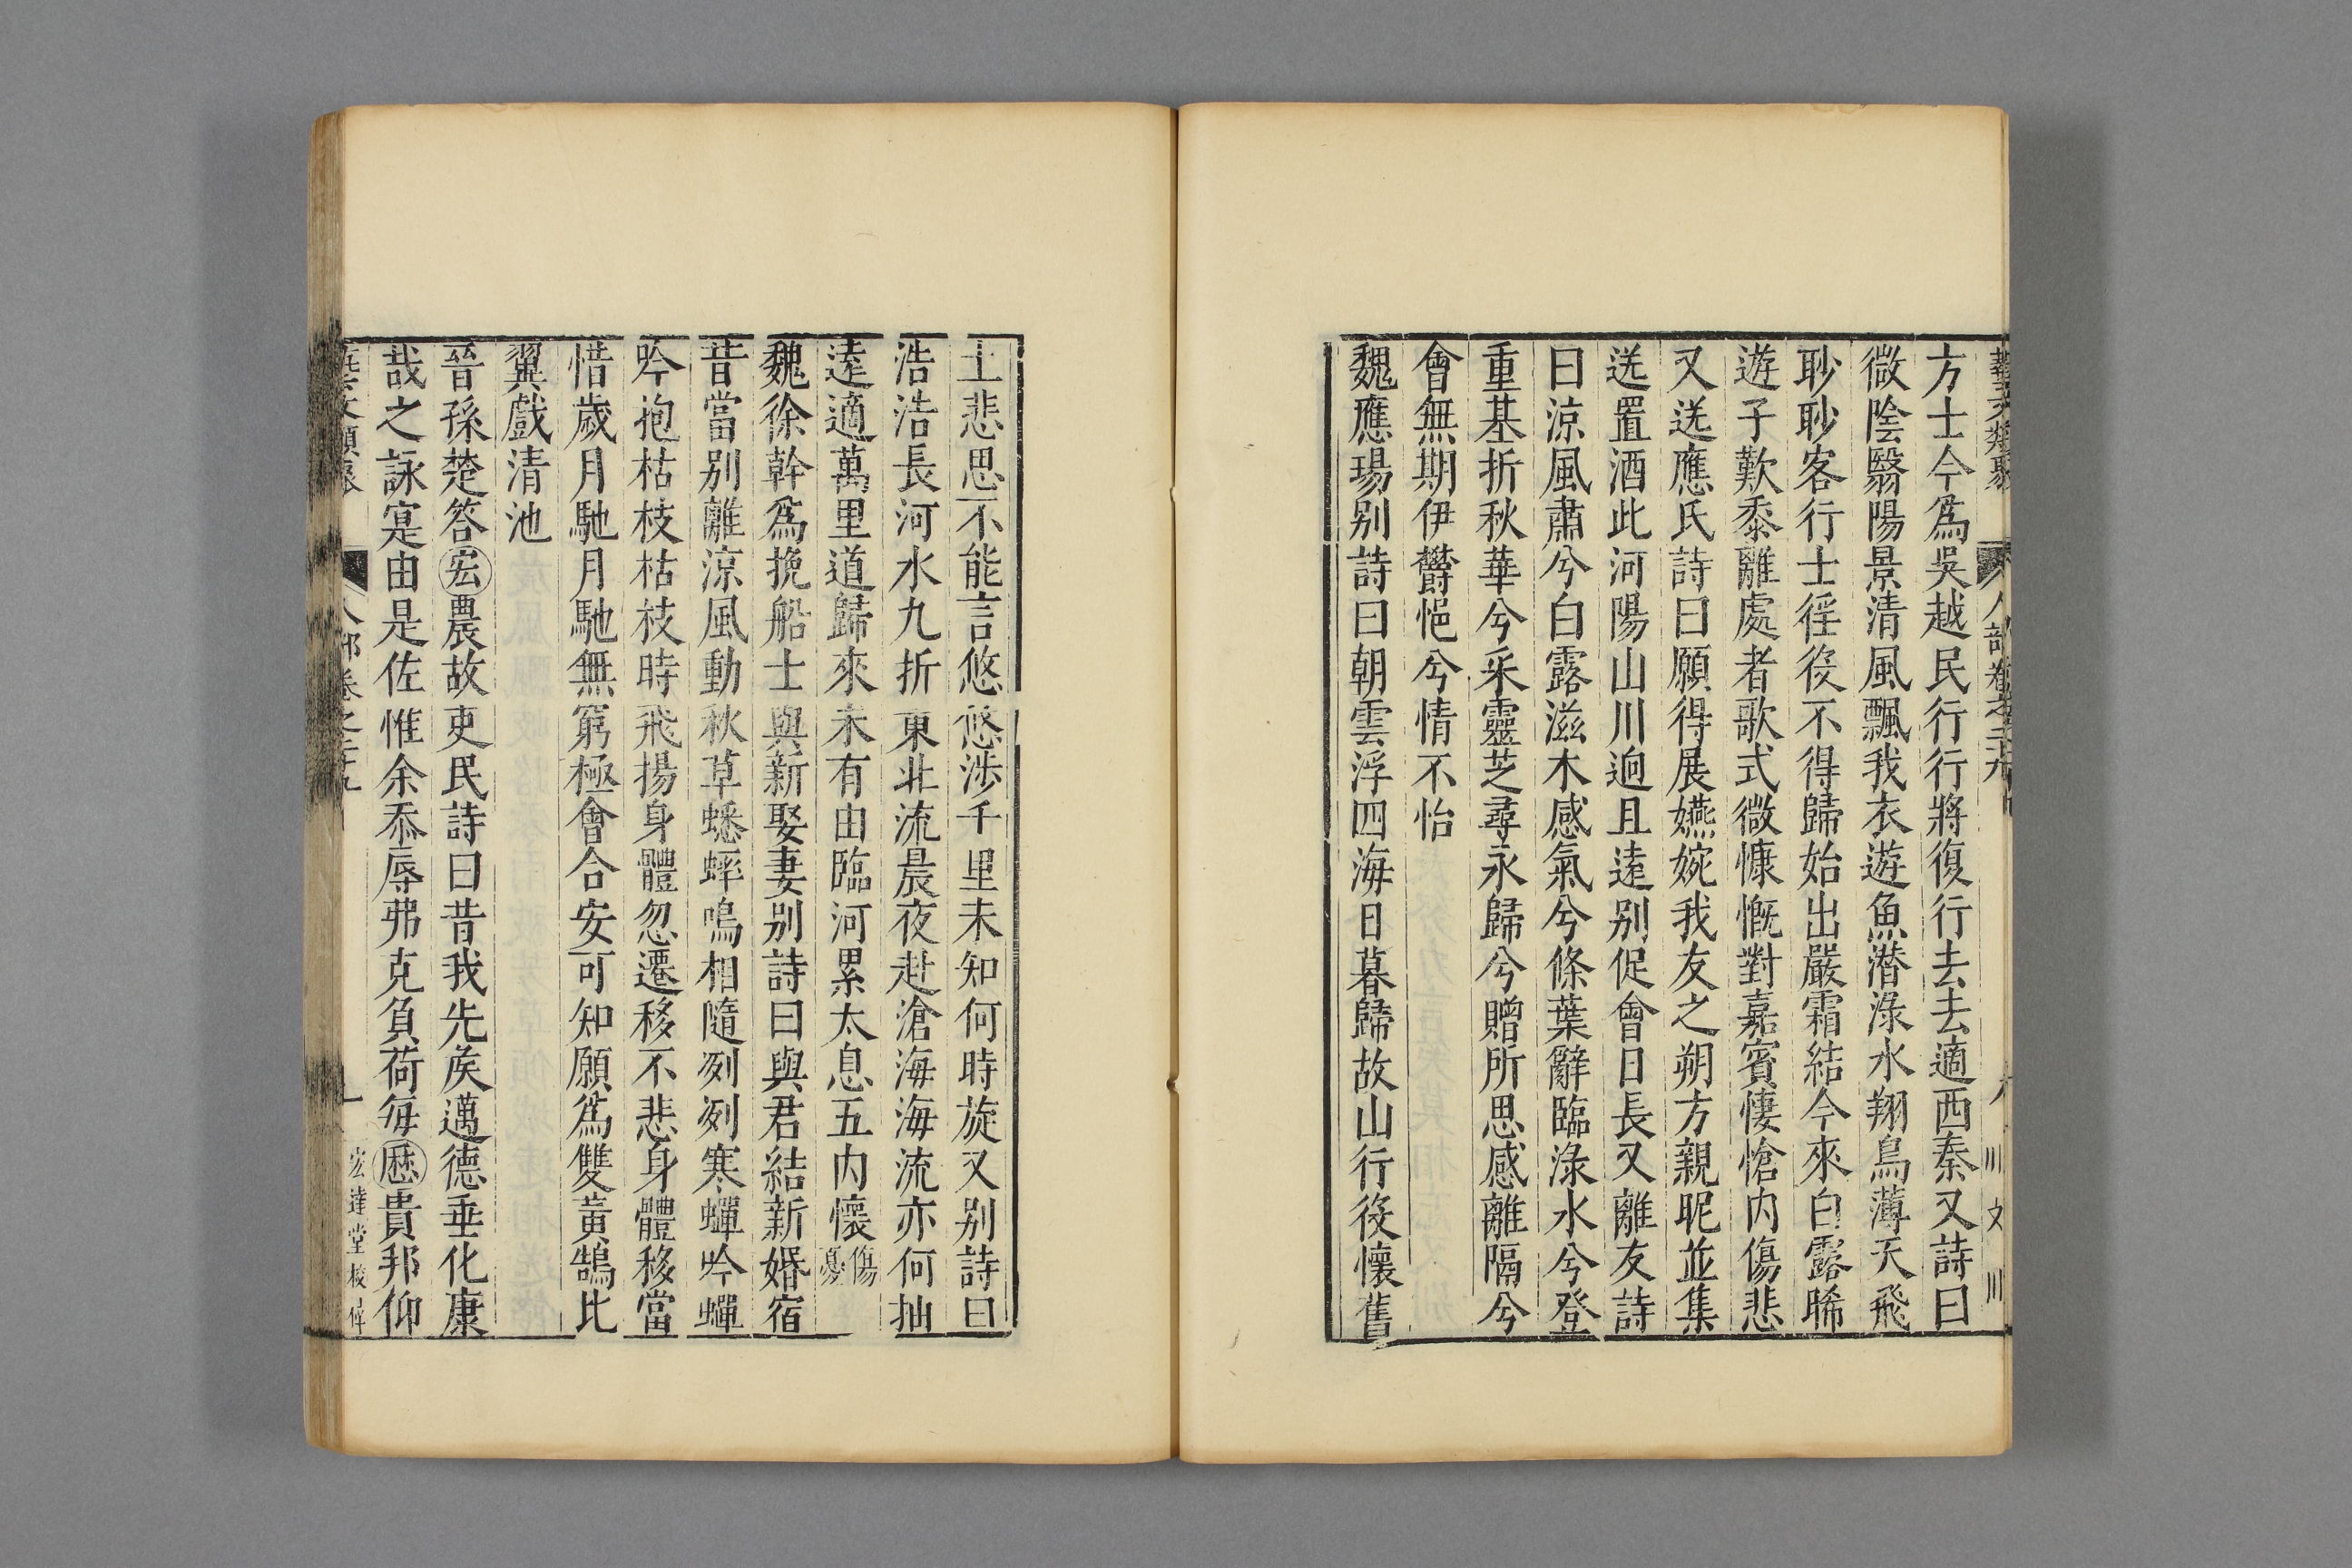 方士今爲吳越民行行將復行去去適西秦又詩曰
微陰翳陽景清風飄我衣遊魚潜淥水翔鳥薄天飛
眇眇客行士徭役不得歸始出嚴霜結今來白露晞
遊子歎黍離處者歌式微慷慨對嘉賓悽愴内傷悲
又送應氏詩曰願得展嬿婉我友之朔方親昵並集
送置酒此河陽山川逈且遠别促會日長又離友詩
曰涼風肅兮白露滋木感氣兮條葉辭臨淥水兮登
重基折秋華兮采靈芝尋永歸兮贈所思感離隔兮
會無期伊鬱悒兮情不怡
魏應瑒别詩曰朝雲浮四海日暮歸故山行役懷舊
土悲思不能言悠悠涉千里未知何時旋又别詩曰
浩浩長河水九折東北流晨夜赴滄海海流亦何抽
遠適萬里道歸來未有由臨河累太息五内懷傷憂
魏徐幹爲挽船士與新娶妻别詩曰與君結新婚宿
昔當别離涼風動秋草蟋蟀鳴相隨冽冽寒蟬吟蟬
吟抱枯枝枯枝時飛揚身體忽遷移不悲身體移當
惜歲月馳月馳無窮極會合安可知願爲雙黃鵠比
翼戲清池
晉孫楚答宏農故吏民詩曰昔我先矦邁德垂化康
哉之詠寔由是佐惟余忝辱弗克負荷每歷貴邦仰
人部卷之二十九
宏達堂校刊